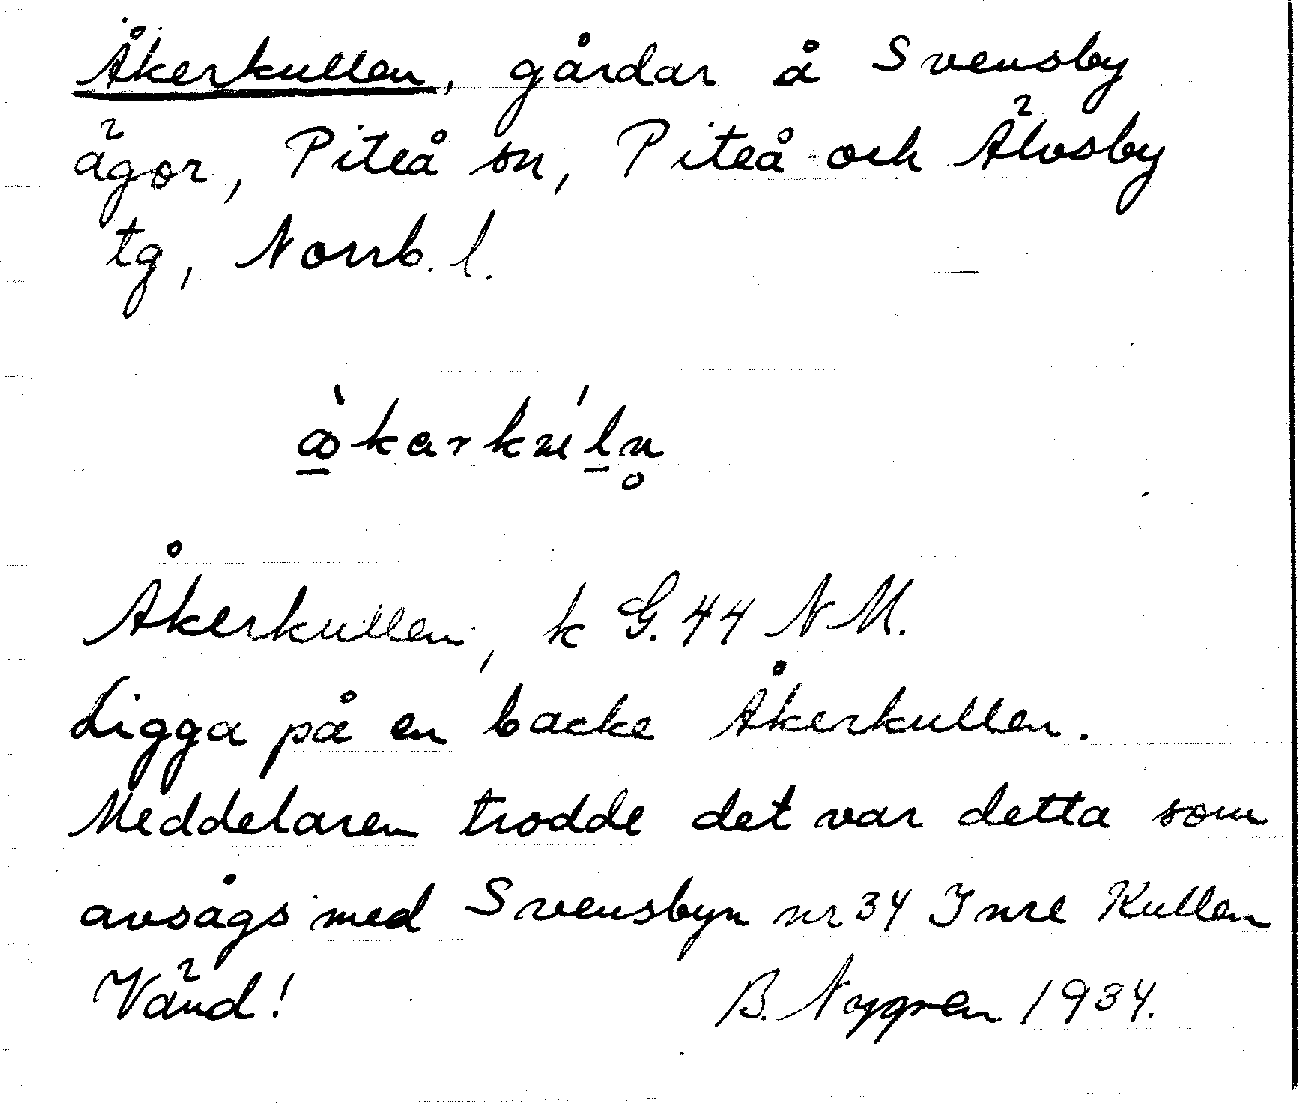 Åkerkullen, gårdar å Svensby
ägor, Piteå sn, Piteå och Älvsby
tg, Norrb. l.
Åkerkullen, k G. 44 NM.
Ligga på en backe Åkerkullen.
Meddelaren trodde det var detta som
avsågs med Svensbyn nr 34 Inre Kullen
Vänd! B. Nygren 1934.